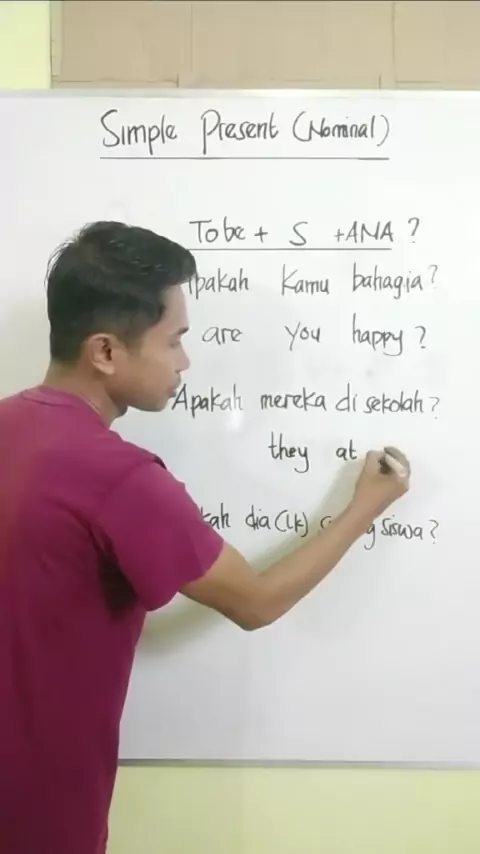 Simple Present (Nominal)
Tobe + S + ANA ?
Kamu bahagia?
are you happy?
Apakah mereka di sekolah?
they at
dia (Lk) siswa?